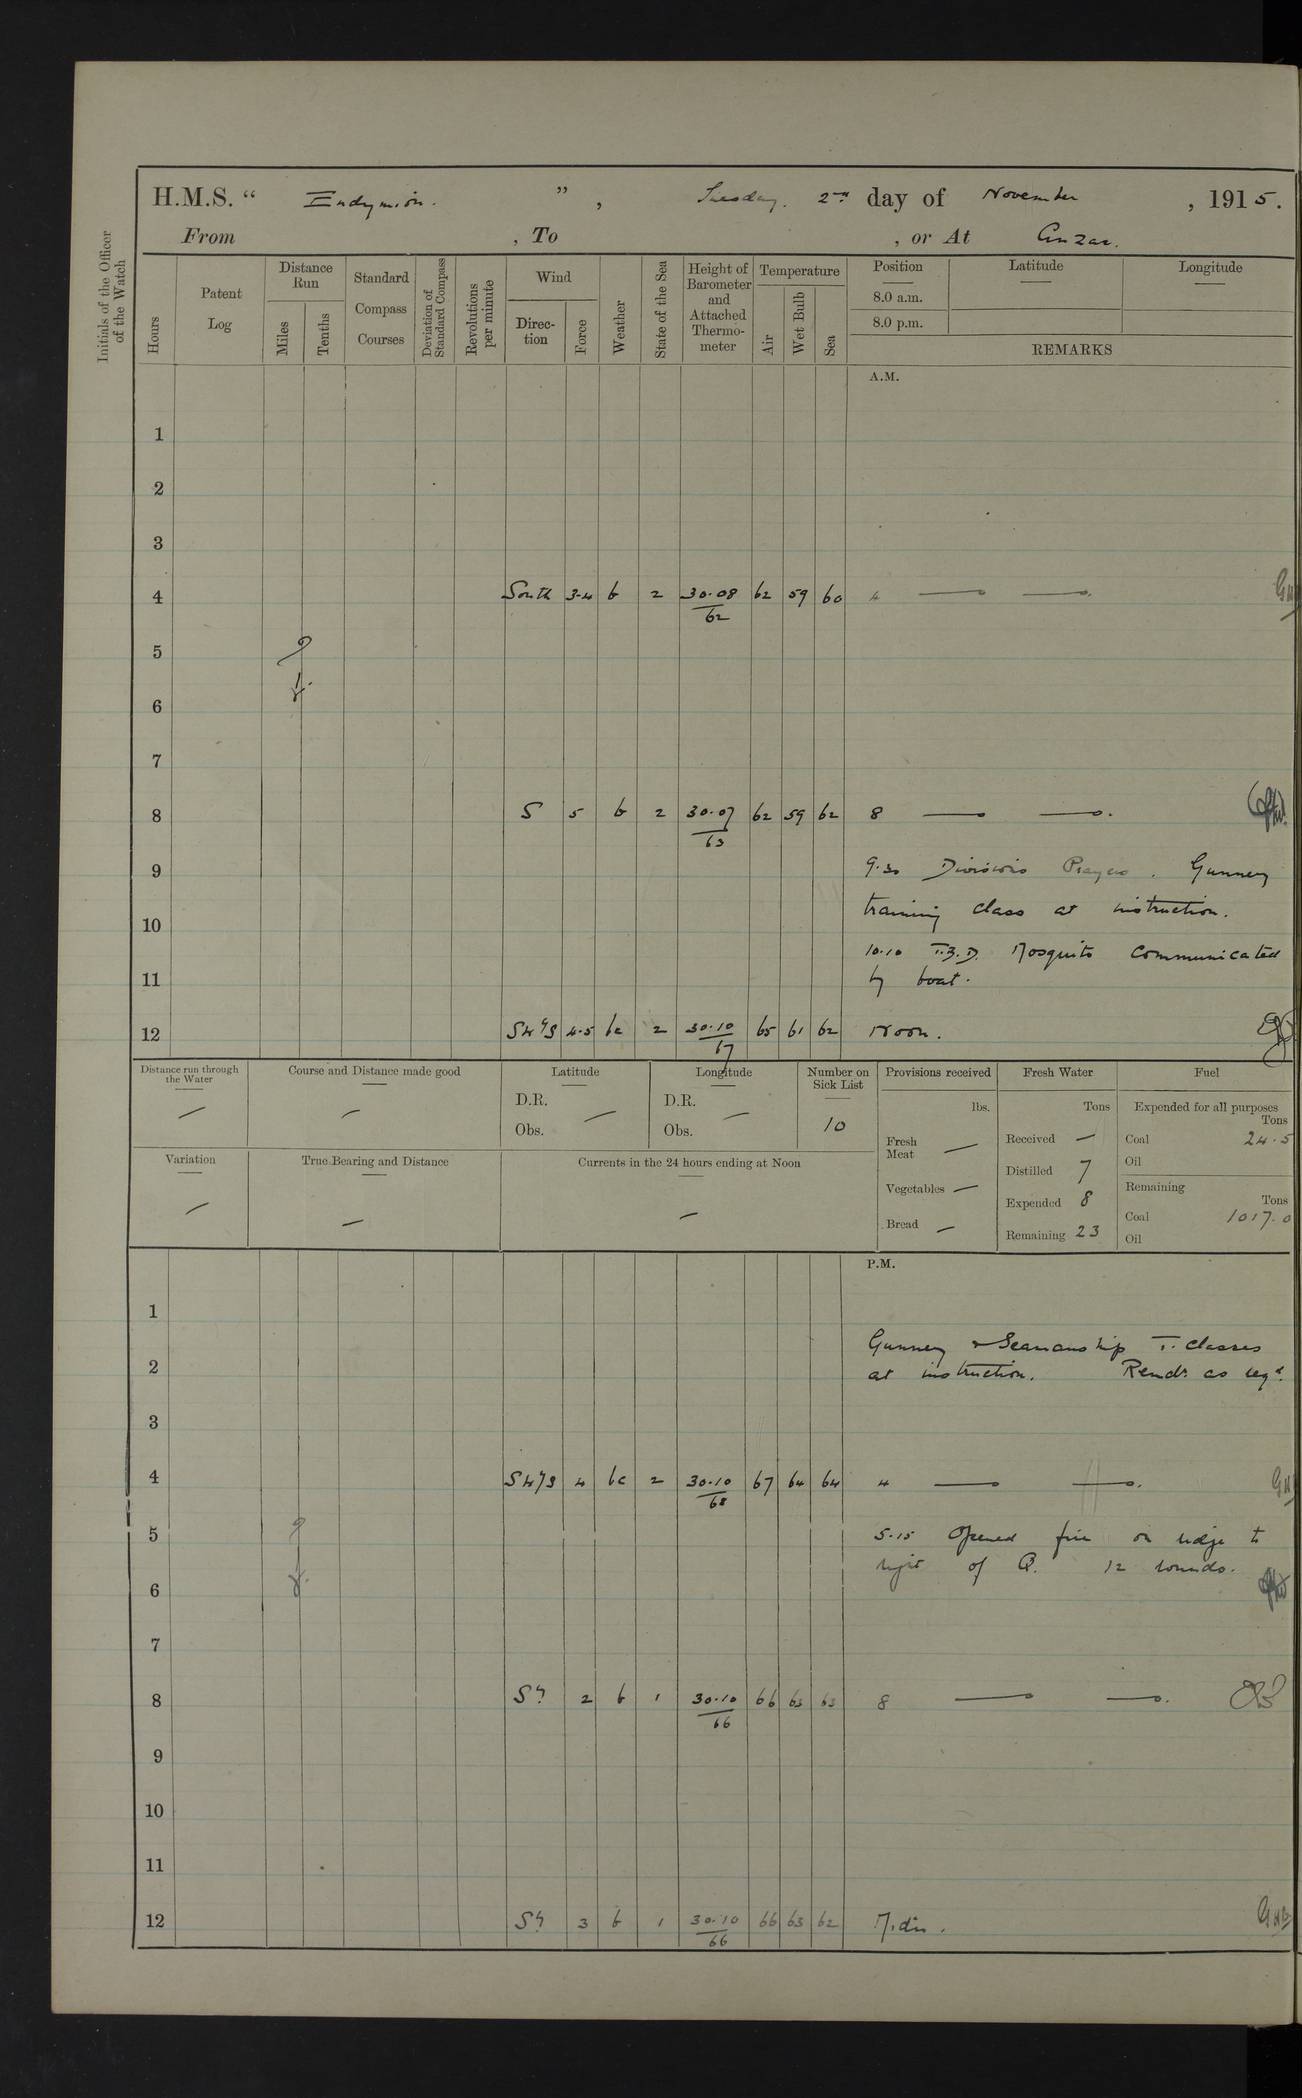 H.M.S. “ Endymion. ”, Tuesday. 2nd day of November, 1915.
From , To , or At Anzac.
Initials of the Officer of the Watch
Hours
Patent Log
Distance Run
Miles
Tenths
Standard Compass Courses
Deviation of Standard Compass
Revolutions per minute
Wind
Direction
Force
Weather
State of the Sea
Height of Barometer and Attached Thermometer
Temperature
Air
Wet Bulb
Sea
Position
8.0 a.m.
8.0 p.m.
Latitude
Longitude
REMARKS
A.M.
1
2
3
4 South 3-4 b 2 30.08/62 62 59 60 4 — —.
5
6
7
8 S 5 b 2 30.07/63 62 59 62 8 — —.
9 9.30 Divisions Prayers. Gunnery
training class at instruction.
10
10.10 T.B.D. Mosquito communicated
11 by boat.
12 SWyS 4-5 bc 2 30.10/67 65 61 62 Noon.
Distance run through the Water —
Course and Distance made good —
Latitude
D.R.
Obs. —
Longitude
D.R.
Obs. —
Number on Sick List
10
Provisions received
lbs.
Fresh Meat —
Vegetables —
Bread —
Fresh Water
Tons
Received —
Distilled 7
Expended 8
Remaining 23
Fuel
Expended for all purposes
Tons
Coal 24.5
Oil
Remaining
Tons
Coal 1017.0
Oil
Variation —
True Bearing and Distance —
Currents in the 24 hours ending at Noon —
P.M.
1
Gunnery & Seamanship T. classes
2 at instruction. Remdr as reqd.
3
4 SWyS 4 bc 2 30.10/68 67 64 64 4 — —.
5 5.15 Opened fire on ridge to
right of Q. 12 rounds.
6
7
8 Sy 2 b 1 30.10/66 66 63 63 8 — —.
9
10
11
12 Sy 3 b 1 30.10/66 66 63 62 Mid.